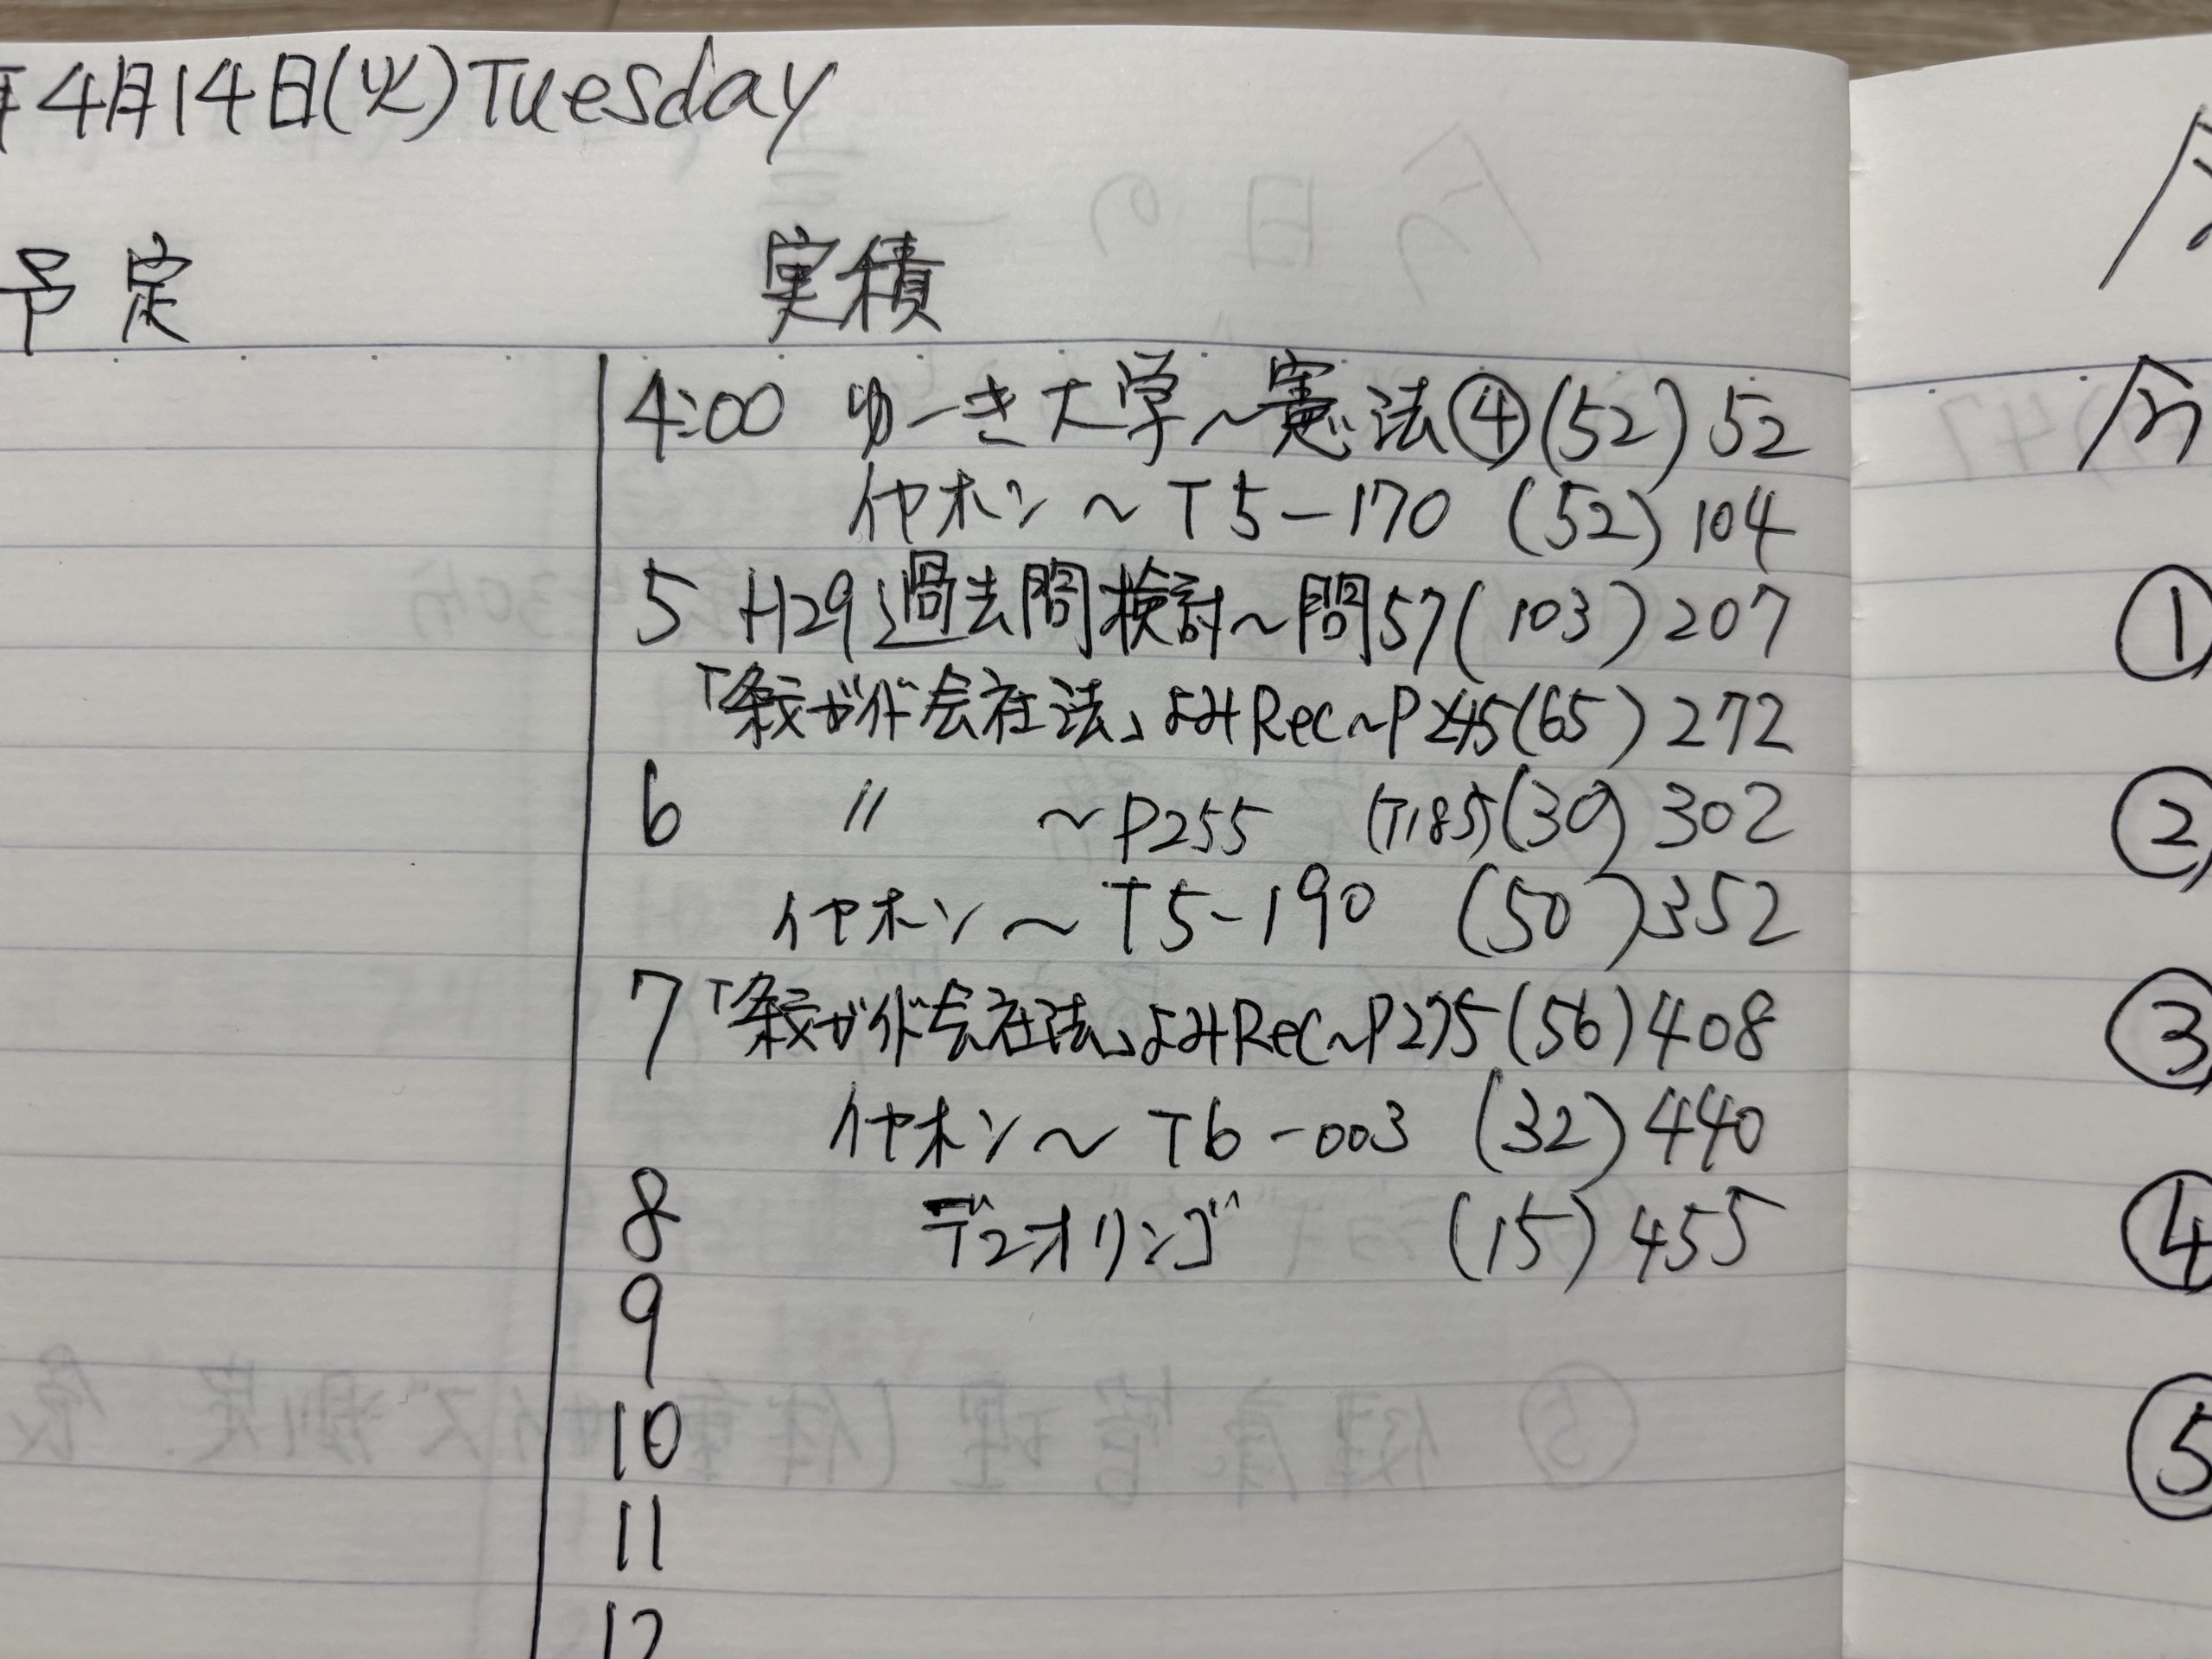 4月14日(火)Tuesday
予定 実積
4:00 ゆーき大学~憲法④(52) 52
イヤホン~T5-170 (52) 104
5 H29過去問検討~問57(103)207
「条文ガイド会社法」よみRec~P245(65)272
6 〃 ~P255 (T185)(30)302
イヤホン~T5-190 (50)352
7「条文ガイド会社法」よみRec~P275(56)408
イヤホン~T6-003 (32)440
8 デュオリンゴ (15)455
9
10
11
12
①
②
③
④
⑤